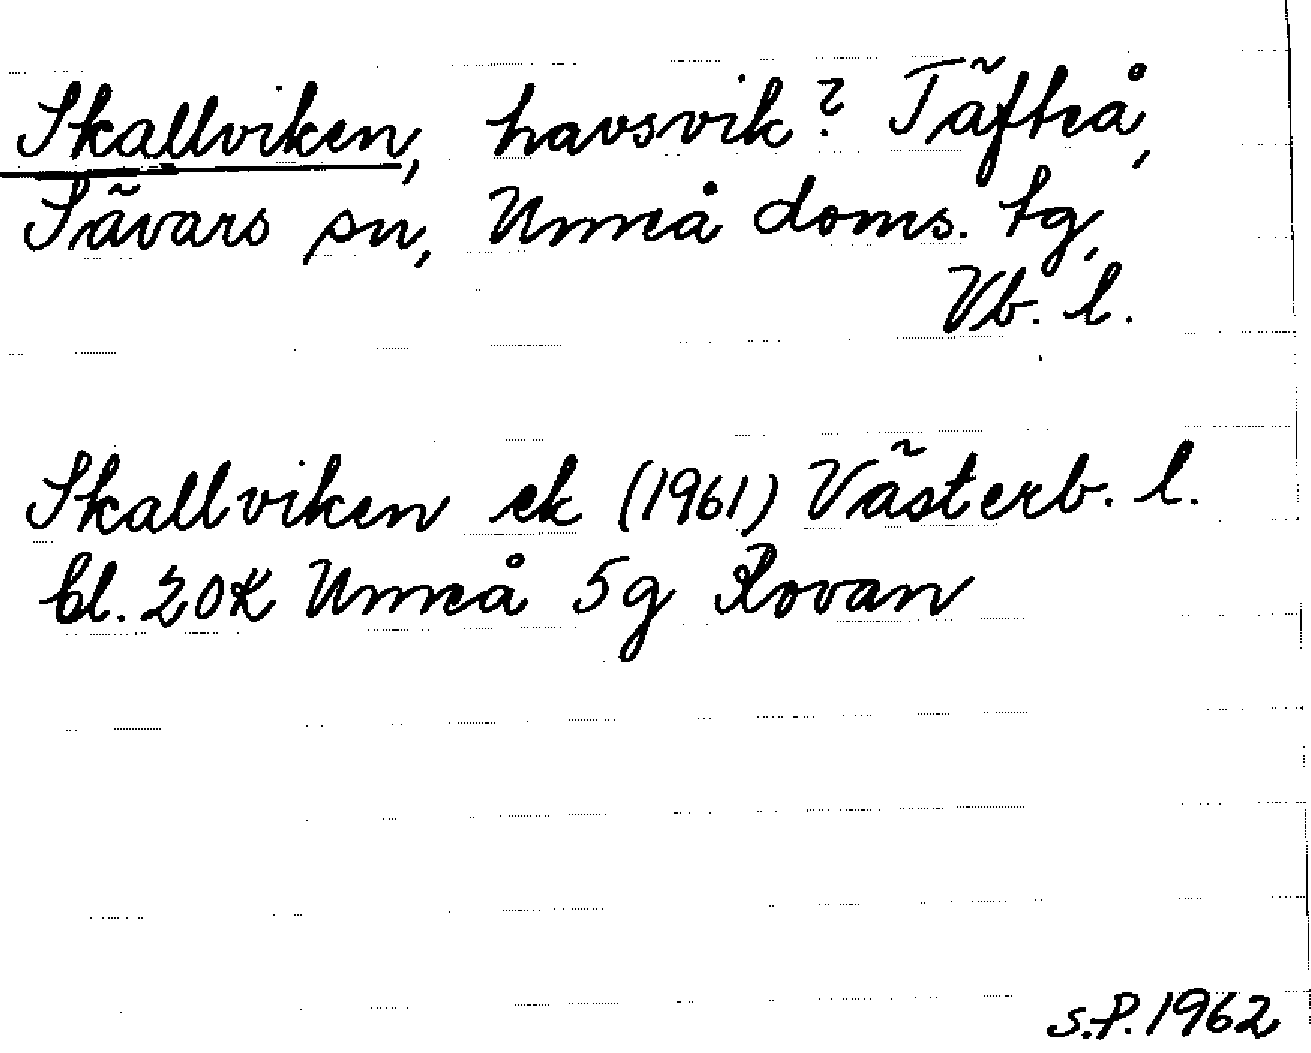 Skallviken, havsvik? Täfteå,
Sävars sn, Umeå doms. tg,
Vb. l.
Skallviken ek (1961) Västerb. l.
bl. 20K Umeå 5g Rovan
s.P. 1962